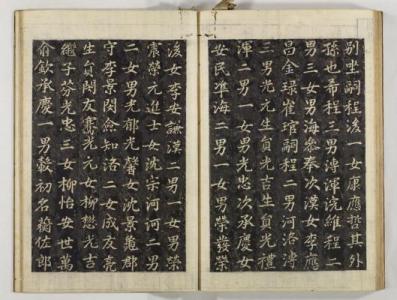 別坐嗣程後一女康應哲其外
孫也希程三男溥渾浣維程二
男三女男海參奉次漢女李應
昌金琭崔琯嗣程二男河洛溥
三男光元生員光吉生員光禮
渾二男一女男光忠次承慶女
安民準海二男一女男榮發榮
後女李安謙漢二男一女男榮
震榮元進士女沈宗河河二男
二女男光郁光馨女沈景胤郡
守李景閔俞知洛二女成友亮
生員閔友騫光元女柳懋光吉
繼子芬光忠三女柳怡安世萬
俞欽承慶一男毅初名橋佐郎